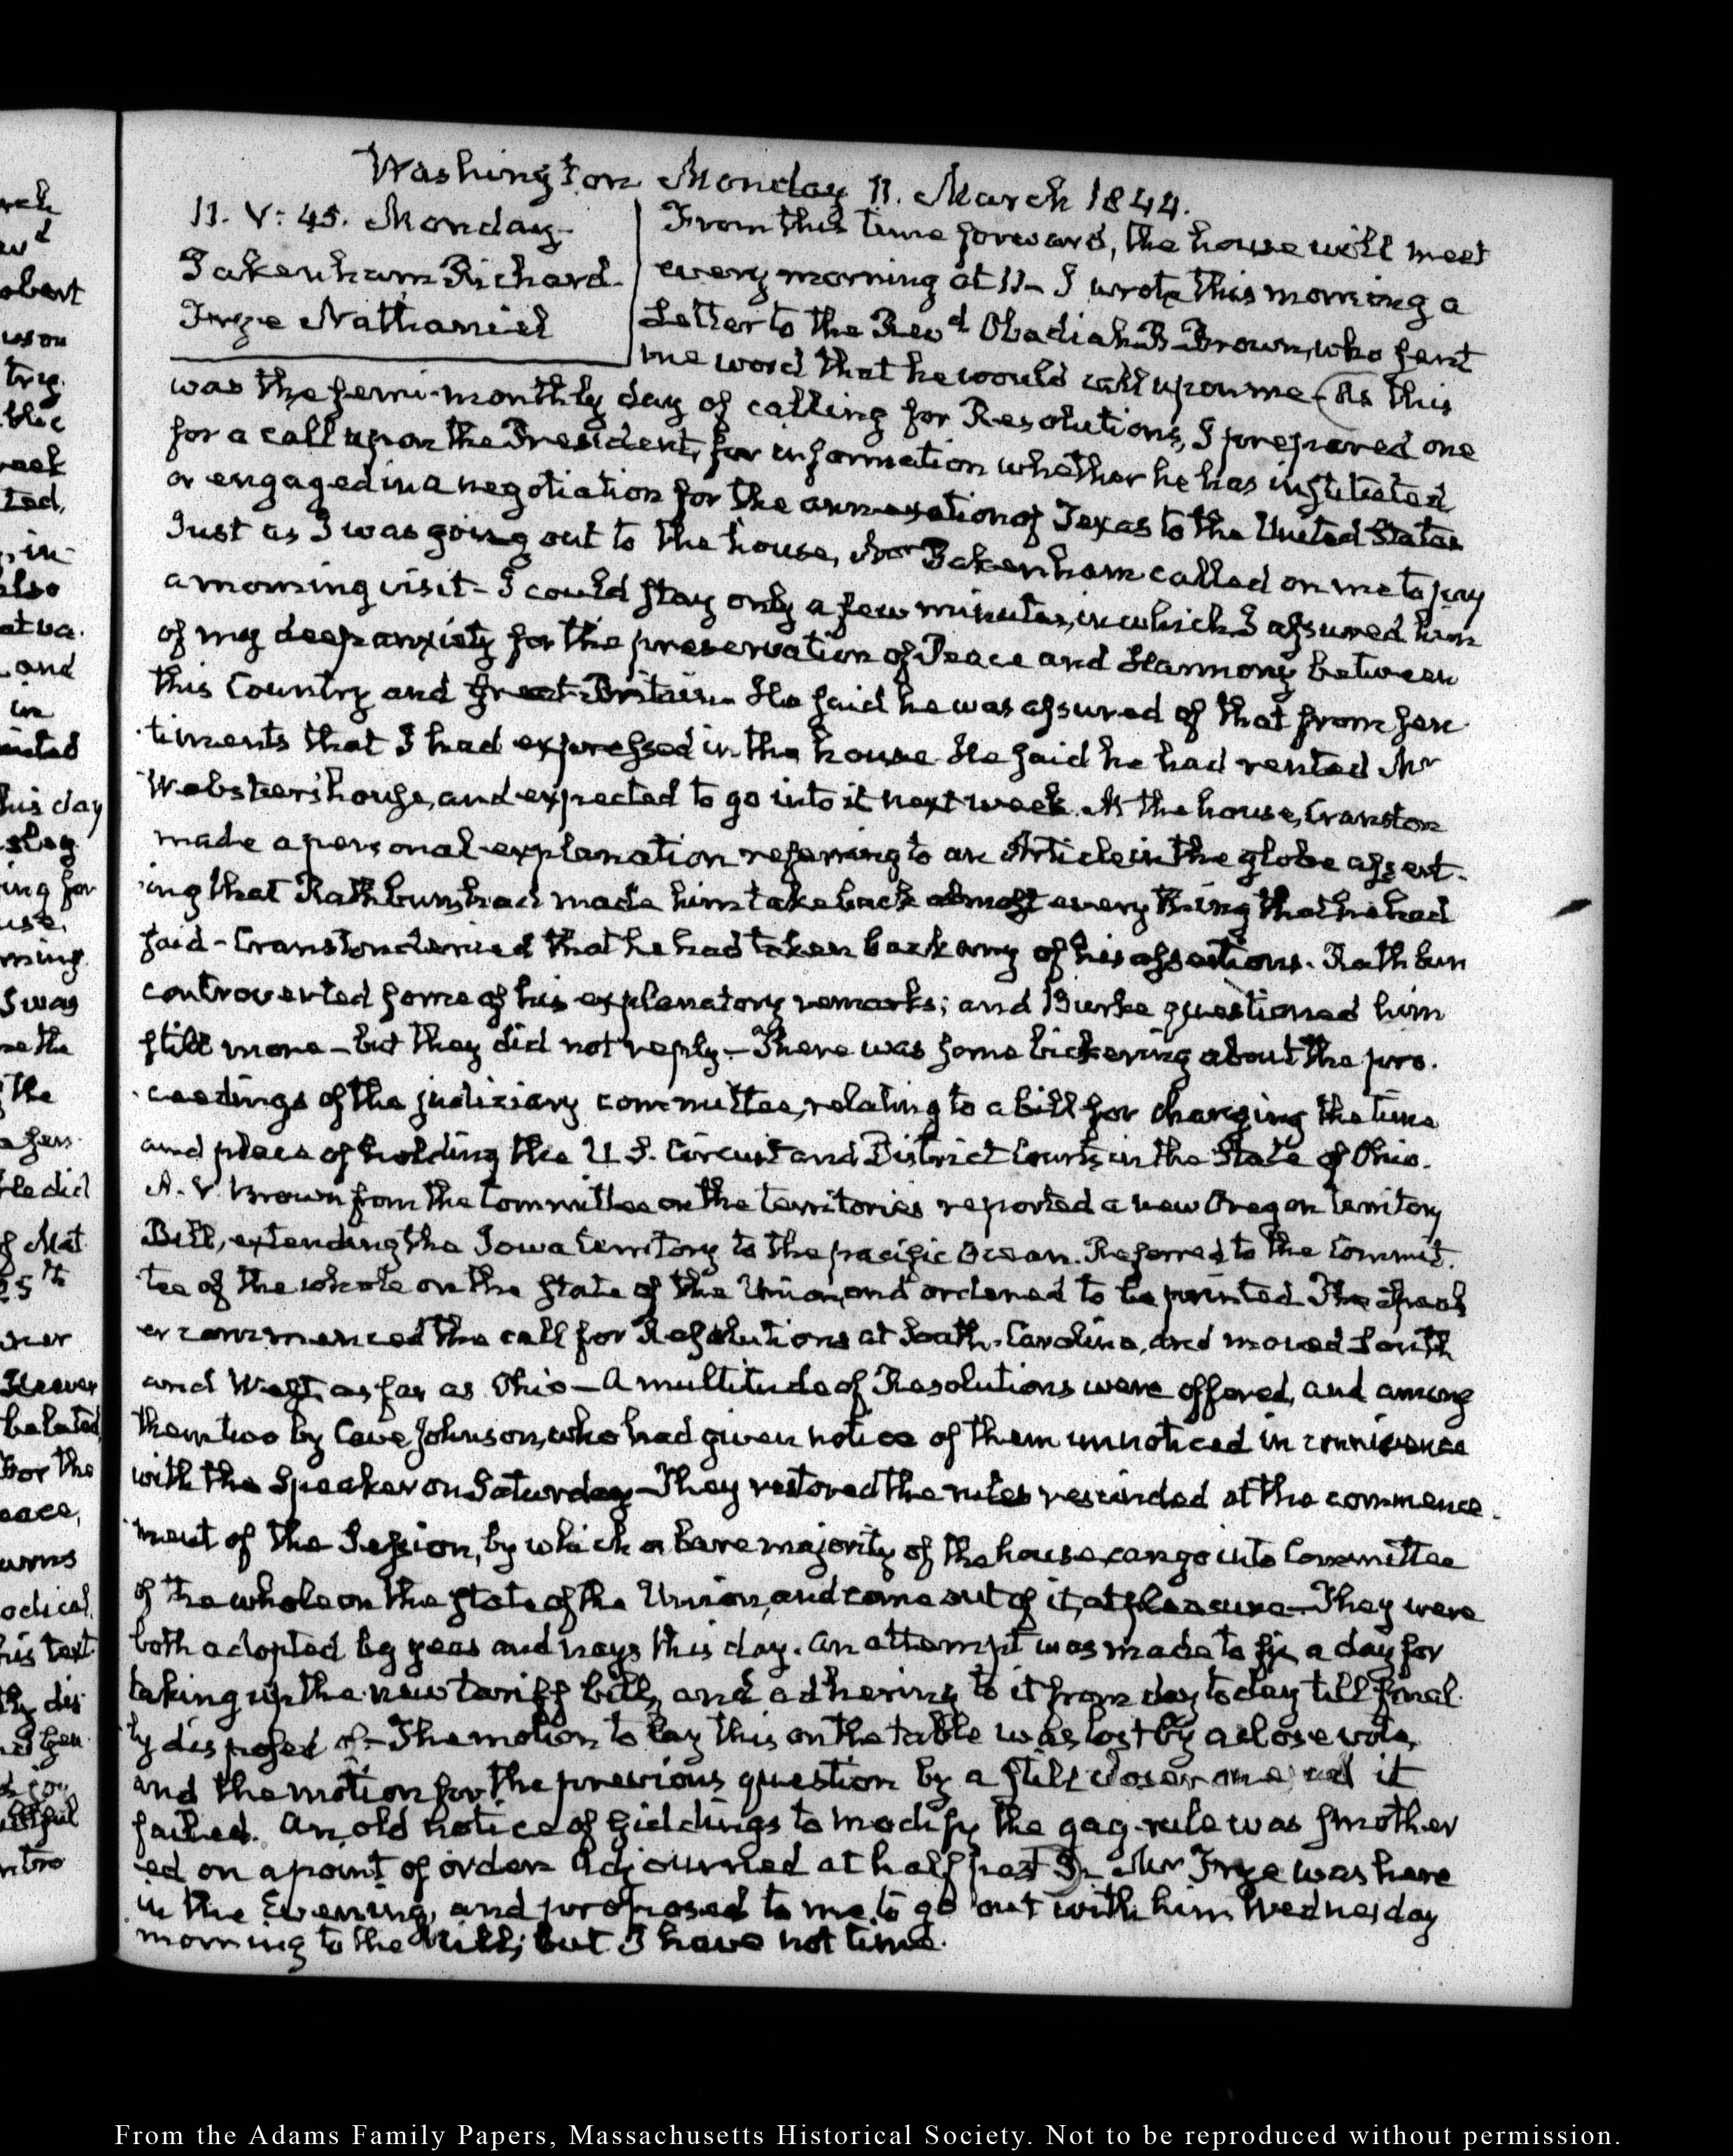 Washington Monday 11. March 1844.
11. V: 45. Monday-
Pakenham Richard-
Frye Nathaniel
From this time forward, the house will meet
every morning at 11- I wrote this morning a
Letter to the Revd Obadiah B. Brown, who sent
me word that he would call upon me- (As this
was the semi-monthly day of calling for Resolutions, I prepared one
for a call upon the President, for information whether he has instituted
or engaged in a negotiation for the annexation of Texas to the United States
Just as I was going out to the house, Mr Pakenham called on me to pay
a morning visit- I could stay only a few minutes, in which I assured him
of my deep anxiety for the preservation of Peace and Harmony between
this Country and Great-Britain- He said he was assured of that from sen-
timents that I had expressed in the house. He said he had rented Mr
Webster's house, and expected to go into it next week. At the house, Cranston
made a personal explanation referring to an Article in the globe assert-
ing that Rathbun had made him take back almost every thing that he had
said- Cranston denied that he had taken back any of his assertions. Rathbun
controverted some of his explanatory remarks; and Burke questioned him
still more- but they did not reply- There was some bickering about the pro-
ceedings of the judiciary committee, relating to a bill for changing the time
and place of holding the U.S. Circuit and District Courts in the State of Ohio.
A. V. Brown from the Committee on the territories reported a new Oregon territory
Bill, extending the Iowa territory to the pacific Ocean. Referred to the Commit-
tee of the whole on the state of the Union, and ordered to be printed. The Speak
er commenced the call for Resolutions at South-Carolina, and moved South
and West, as far as Ohio- A multitude of Resolutions were offered, and among
them two by Cave Johnson, who had given notice of them unnoticed in connivance
with the Speaker on Saturday- They restored the rules rescinded at the commence-
ment of the Session, by which a bare majority of the house can go into Committee
of the whole on the state of the Union, and come out of it, at pleasure- They were
both adopted by yeas and nays this day. An attempt was made to fix a day for
taking up the new tariff bill, and adhering to it from day to day till final-
ly disposed of- The motion to lay this on the table was lost by a close vote,
and the motion for the previous question by a still closer one and it
failed. An old notice of Giddings to modify the gag-rule was smother
ed on a point of order. Adjourned at half past 3- Mr Frye was here
in the Evening, and proposed to me to go out with him Wednesday
morning to the Mill; but I have not time.
obert
his day
I was
the
Mat
25th
belated
For the
his text
From the Adams Family Papers, Massachusetts Historical Society. Not to be reproduced without permission.